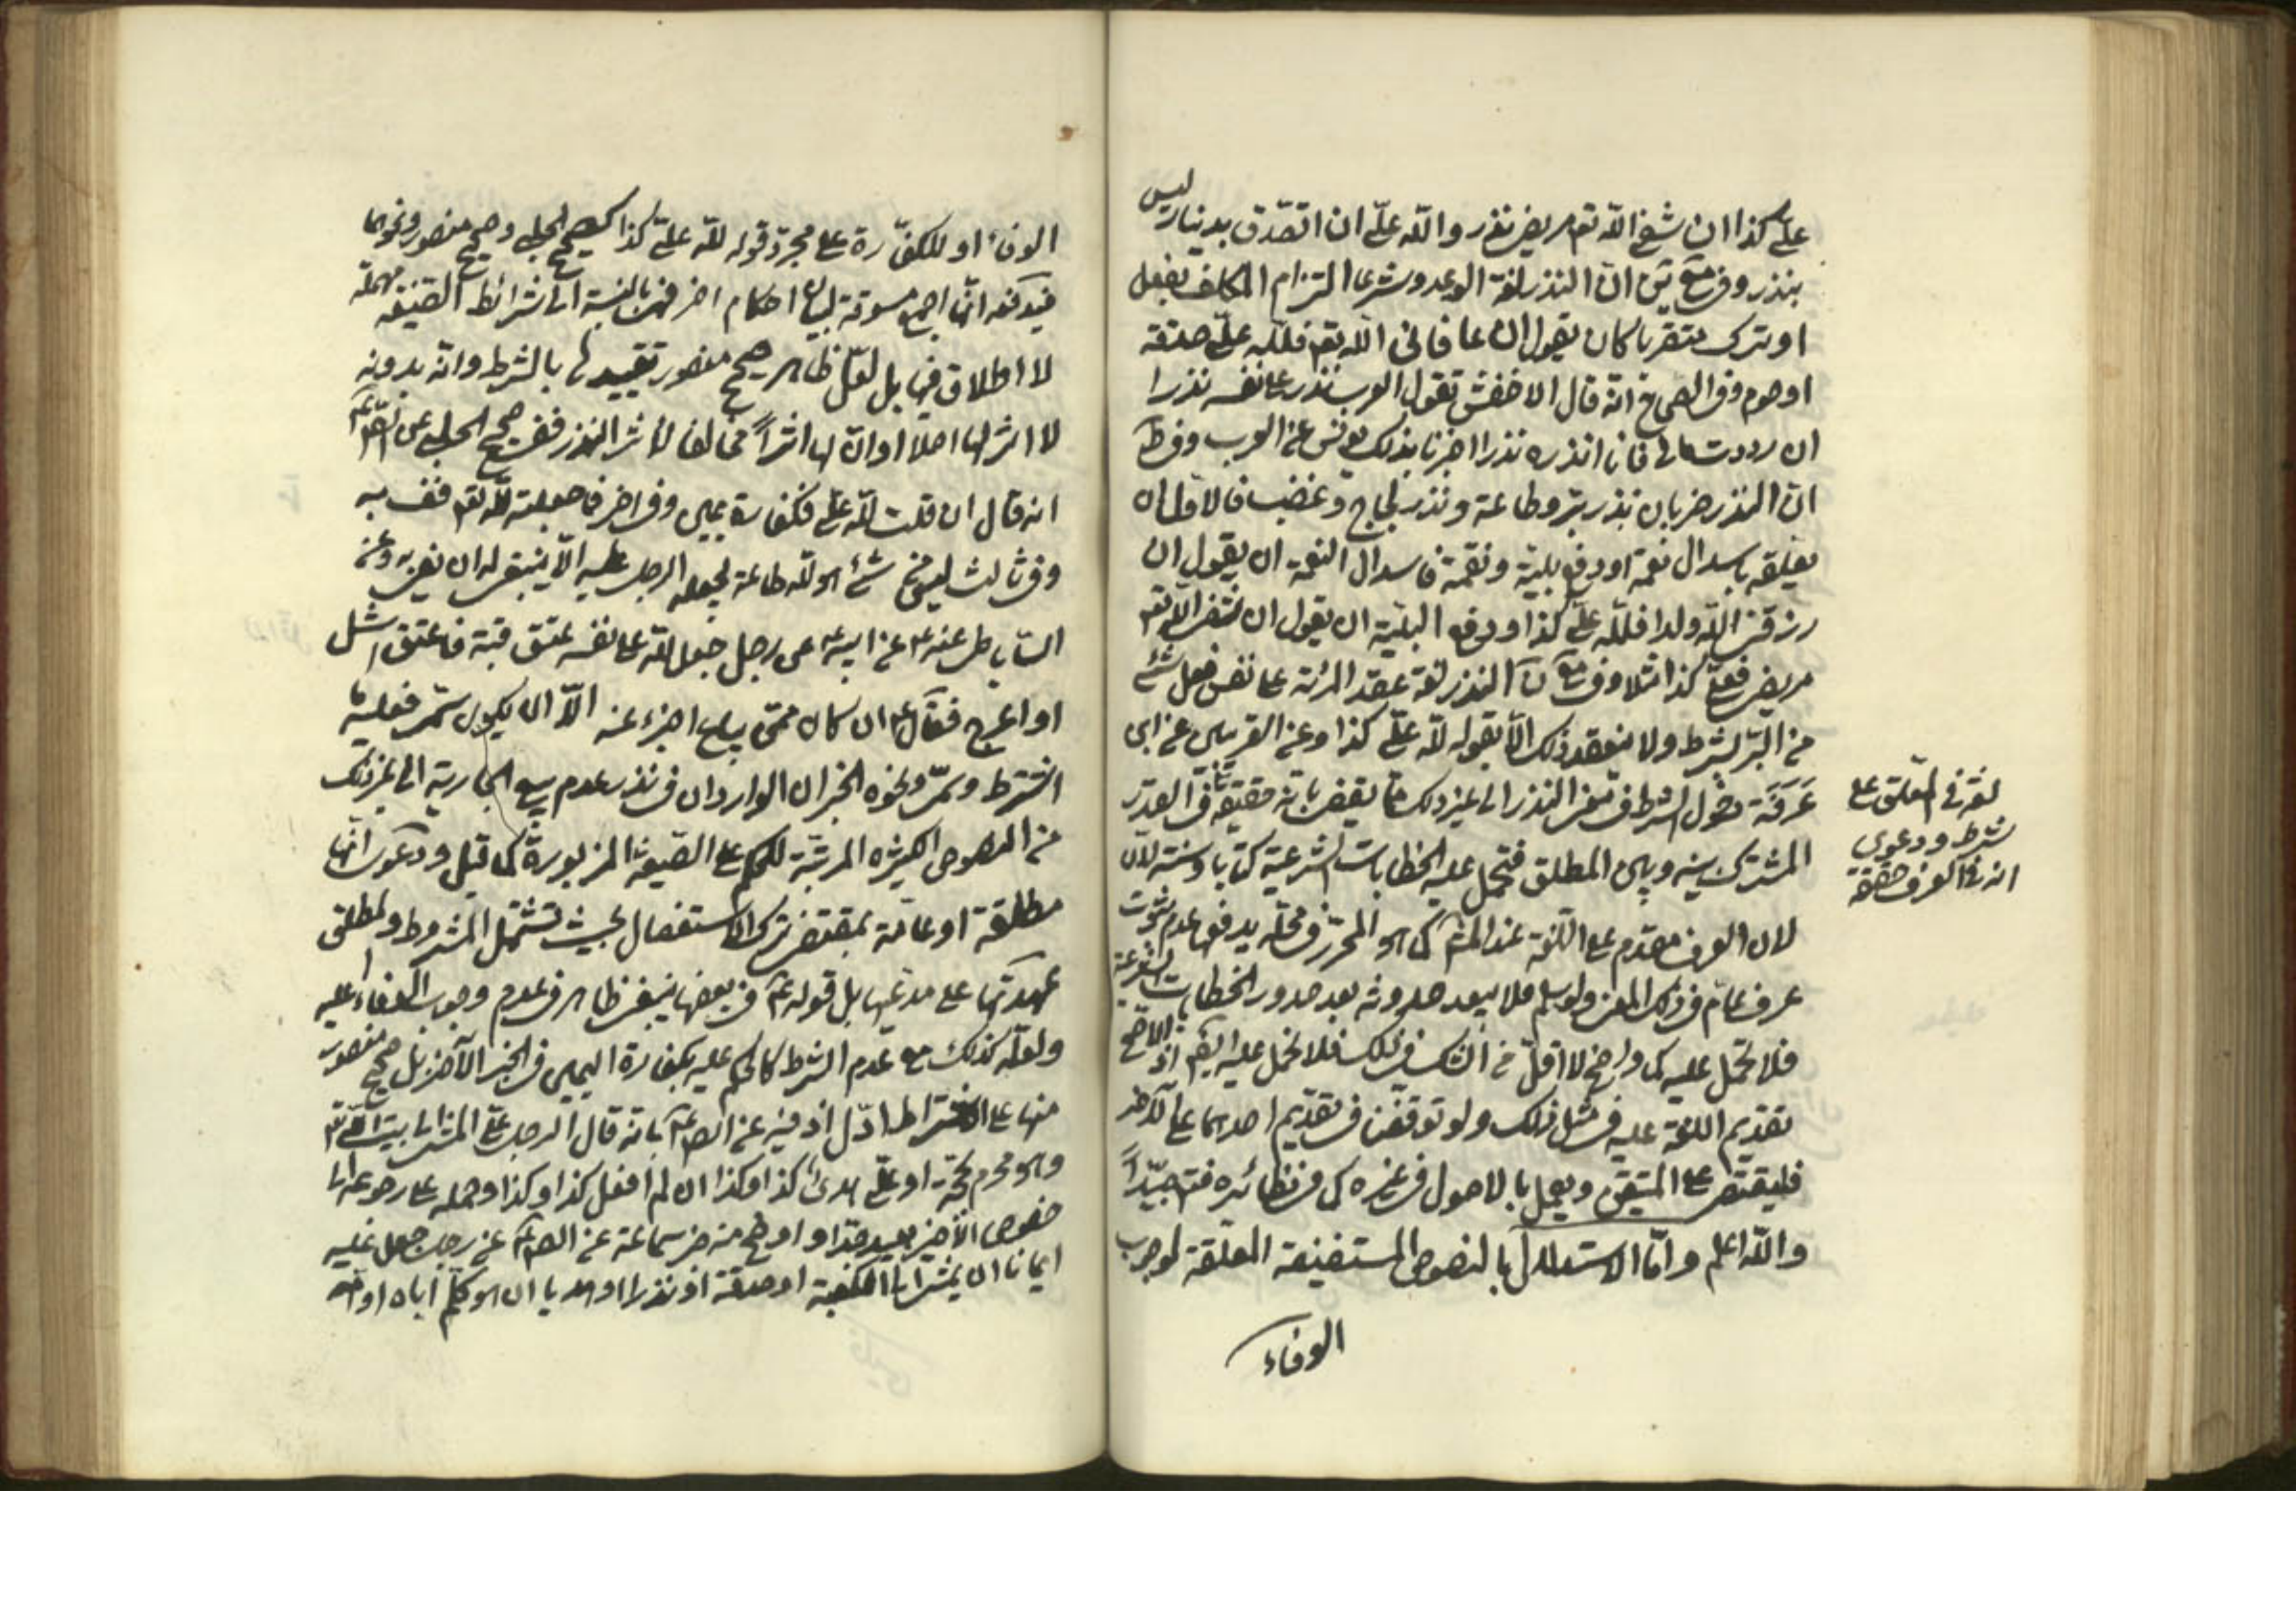 علىّ كذا ان شفى الله تع مريضى نذر والله علىّ ان اتصدق بدينار ليس
بنذر وفى ان النذر لغة الوعد وشرعا التزام المكلف بفعل
او ترك متقربا كان يقول ان عافانى الله تع فلله علىّ صدقة
او صوم وفى الصحاح انه قال الاخفش تقول العرب نذر على نفسه نذرا
ان رددت مالى فانا انذره نذرا اخبرنا بذلك يونس عن العرب وفى ط
ان النذر ضربان نذر بر وطاعة ونذر لجاج وغضب فالاول ان
يعلقه باسداء نعمة او دفع بلية ونقمة فاسداء النعمة ان يقول ان
رزقنى الله ولدا فلله علىّ كذا او دفع البلية ان يقول ان شفى الله تع
مريضى فعلىّ كذا مثلا وفى النذر لغة عقد المرئة على نفس فعل شئ
من البر بشرط ولا ينعقد ذلك الا بقوله لله علىّ كذا وعن القريبين عن ابى
عَرَفَة دخول الشرط فى معنى النذر الى غير ذلك مما يقضى بانه حقيقة فى القدر
المشترك بينه وبين المطلق فتحمل عليه الخطابات الشرعية كتابا وسنة لان
لان العرف مقدم على اللغة عند المشهور كما هو المحرر فى محله يدفعها عدم ثبوت
عرف عام فى ذلك المعنى ولو سلم فلا يبعد حدوثه بعد صدور الخطابات الشرعية
فلا تحمل عليه كما هو واضح لا اقل من الشك فى ذلك فلا تحمل عليه ايضا اذ الاصح
تقديم اللغة عليه فى مثل ذلك ولو توقفنا فى تقديم احدهما على الآخر
فليقتصر على المتيقن ويعمل بالاصول فى غيره كما فى نظائره فتم جيّداً
والله اعلم واما الاستدلال بالنصوص المستفيضة المعلقة لوجوب
الوفاء
لغة فى المعلق على
شرط ودعوى
انه فى العرف حقيقة
الوفاء او للكفّارة على مجرد قوله لله علىّ كذا كصحيح الحلبى وصحيح منصور ونحوهما
فيدفعه انها اجمع مسوقة لبيان احكام اخر فهى بالنسبة الى شرائط الصيغة مهملة
لا اطلاق فيها بل لعل ظاهر صحيح منصور تقييدها بالشرط وانه بدونه
لا اثر لها اصلا او ان لها اثراً مخالفا لاثر النذر ففى صحيح الحلبى عن الصّ ع
انه قال ان قلت لله علىّ فكفارة يمين وفى اخر فما جعلته لله تع فف به
وفى ثالث ليس من شئ هو لله طاعة يجعله الرجل عليه الا ينبغى له ان يفى به وعن
الساباطى عنه ع عن ابيه ع عن رجل جعل لله على نفسه عتق رقبة فاعتق اشل
او اعرج فقال ع ان كان ممن يباع اجزء عنه الا ان يكون سمّى فعليه ما
اشترط وسمّى ونحوه الخبران الواردان فى نذر عدم بيع الجارية الى غير ذلك
من النصوص الكثيره المرتبة للحكم على الصيغة المزبورة كما قيل ودعوى انها
مطلقة او عامة بمقتضى ترك الاستفصال بحيث تشتمل المشروط والمطلق
عهدتها على مدعيها بل قوله ع فى بعضها ينبغى ظاهر فى عدم وجوب الوفاء عليه
ولعله كذلك مع عدم الشرط كالحكم عليه بكفارة اليمين فى الخبر الآخر بل صحيح منصور
منها على الاشتراط ادلّ اذ فيه عن الصّ ع بانه قال الرجل علىّ المشى الى بيت الله تع
وهو محرم بحجة او علىّ هدى كذا وكذا ان لم افعل كذا وكذا وحمله على رجوعه الى
خصوص الاخير بعيد جدا واوضح منه خبر سماعة عن الصّ ع عن رجل جعل عليه
ايمانا ان يمشى الى الكعبة او صدقة او نذرا او هديا ان هو كلم اباه او اخاه